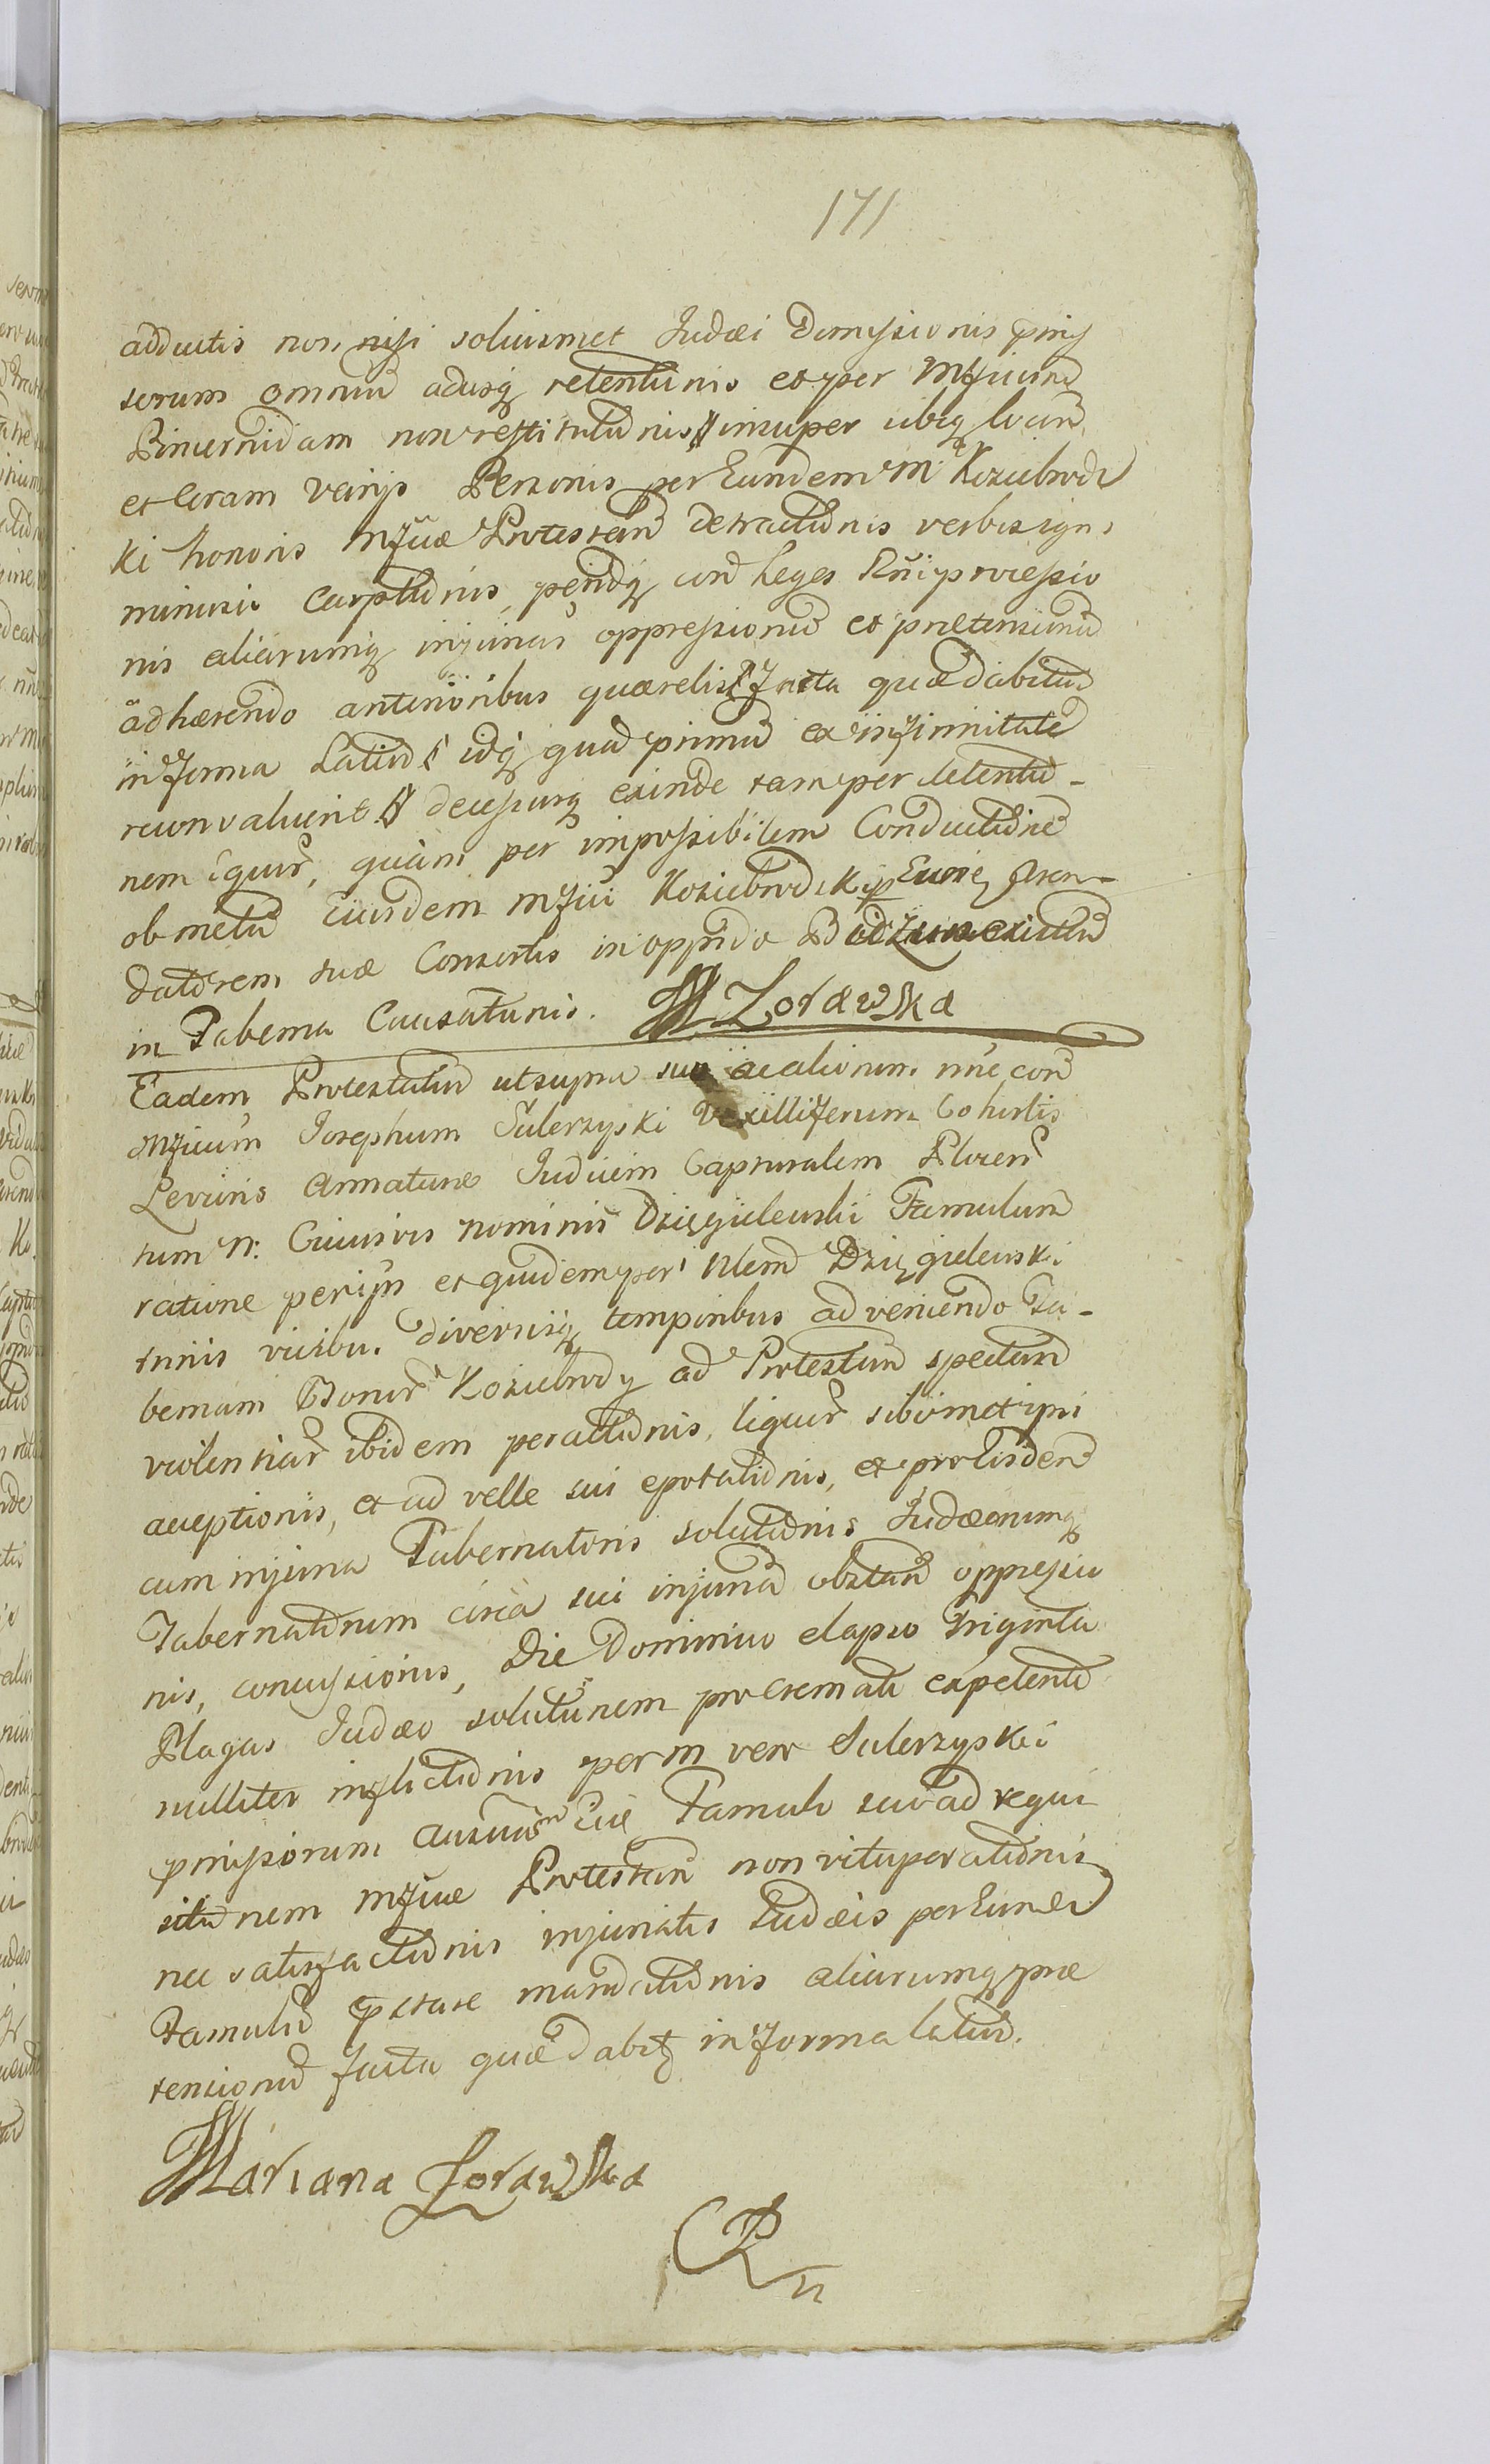 171
adductis non nisi soliusmet Judæi Dimissionis pmis
sorum omnium adusq retentionis et per Mfficum
Pincernidam non restitutionis insuper ubiq locorum
et Coram varijs Personis per Eundem M Koziebrodz
ki honoris Mfficæ Protestan detractionis verbis igno
miniosis carptionis, pendq contra Leges Rni processio
nis aliarumq injuriar oppressionum et prætensionum
adhærendo anterioribus quærelis facta quæ dabitur
in forma Latiori idq quam primum ex infirmitate
reconvaluerit decessusq exinde tam per detentio-
nem Equor, quam per impossibilem Conductionem
ob metum Eiusdem Mffici Koziebrodzki Aren-
datorem suæ Consortis in oppido
in Taberna Causationis. M Zorawska
Eadem Protestatio ut supra suo ac aliorum nne contra
Mfficum Josephum Sulerzyski Vexilliferum Cohortis
Levioris Armaturæ Judicem Capturalem Plocen
tum N: Cuiusvis nominis Dzięgielewski Famulum
ratione perijm et quidem per Nlem Dzięgielewski
trinis vicibus diversisq temporibus adveniendo Ta-
bernam Bonor Koziebrody ad Protestan spectan
violentiar ibidem peractionis, liquor sibimet ipsi
acceptionis, et ad velle sui epotationis, et pro Eisdem
cum injuria Tabernatoris solutionis Judæorumq
Tabernatorum circa sui injuriam obstan oppressio
nis, concussionis, Die Dominico elapso Triginta
Plagas Judæo solutionem pro cremato expetenti
nulliter inflictionis per M vero Sulerzyski
pmissorum ausuum Famuli sui ad requi
sitionem Mfficæ Protestan non vituperationis
nec satisfactionis injuriatis Judæis per Eunde
Famulum pstare mandationis aliarumq præ
tensionum facta quæ dabitq in forma latiori.
Mariana Zorawska